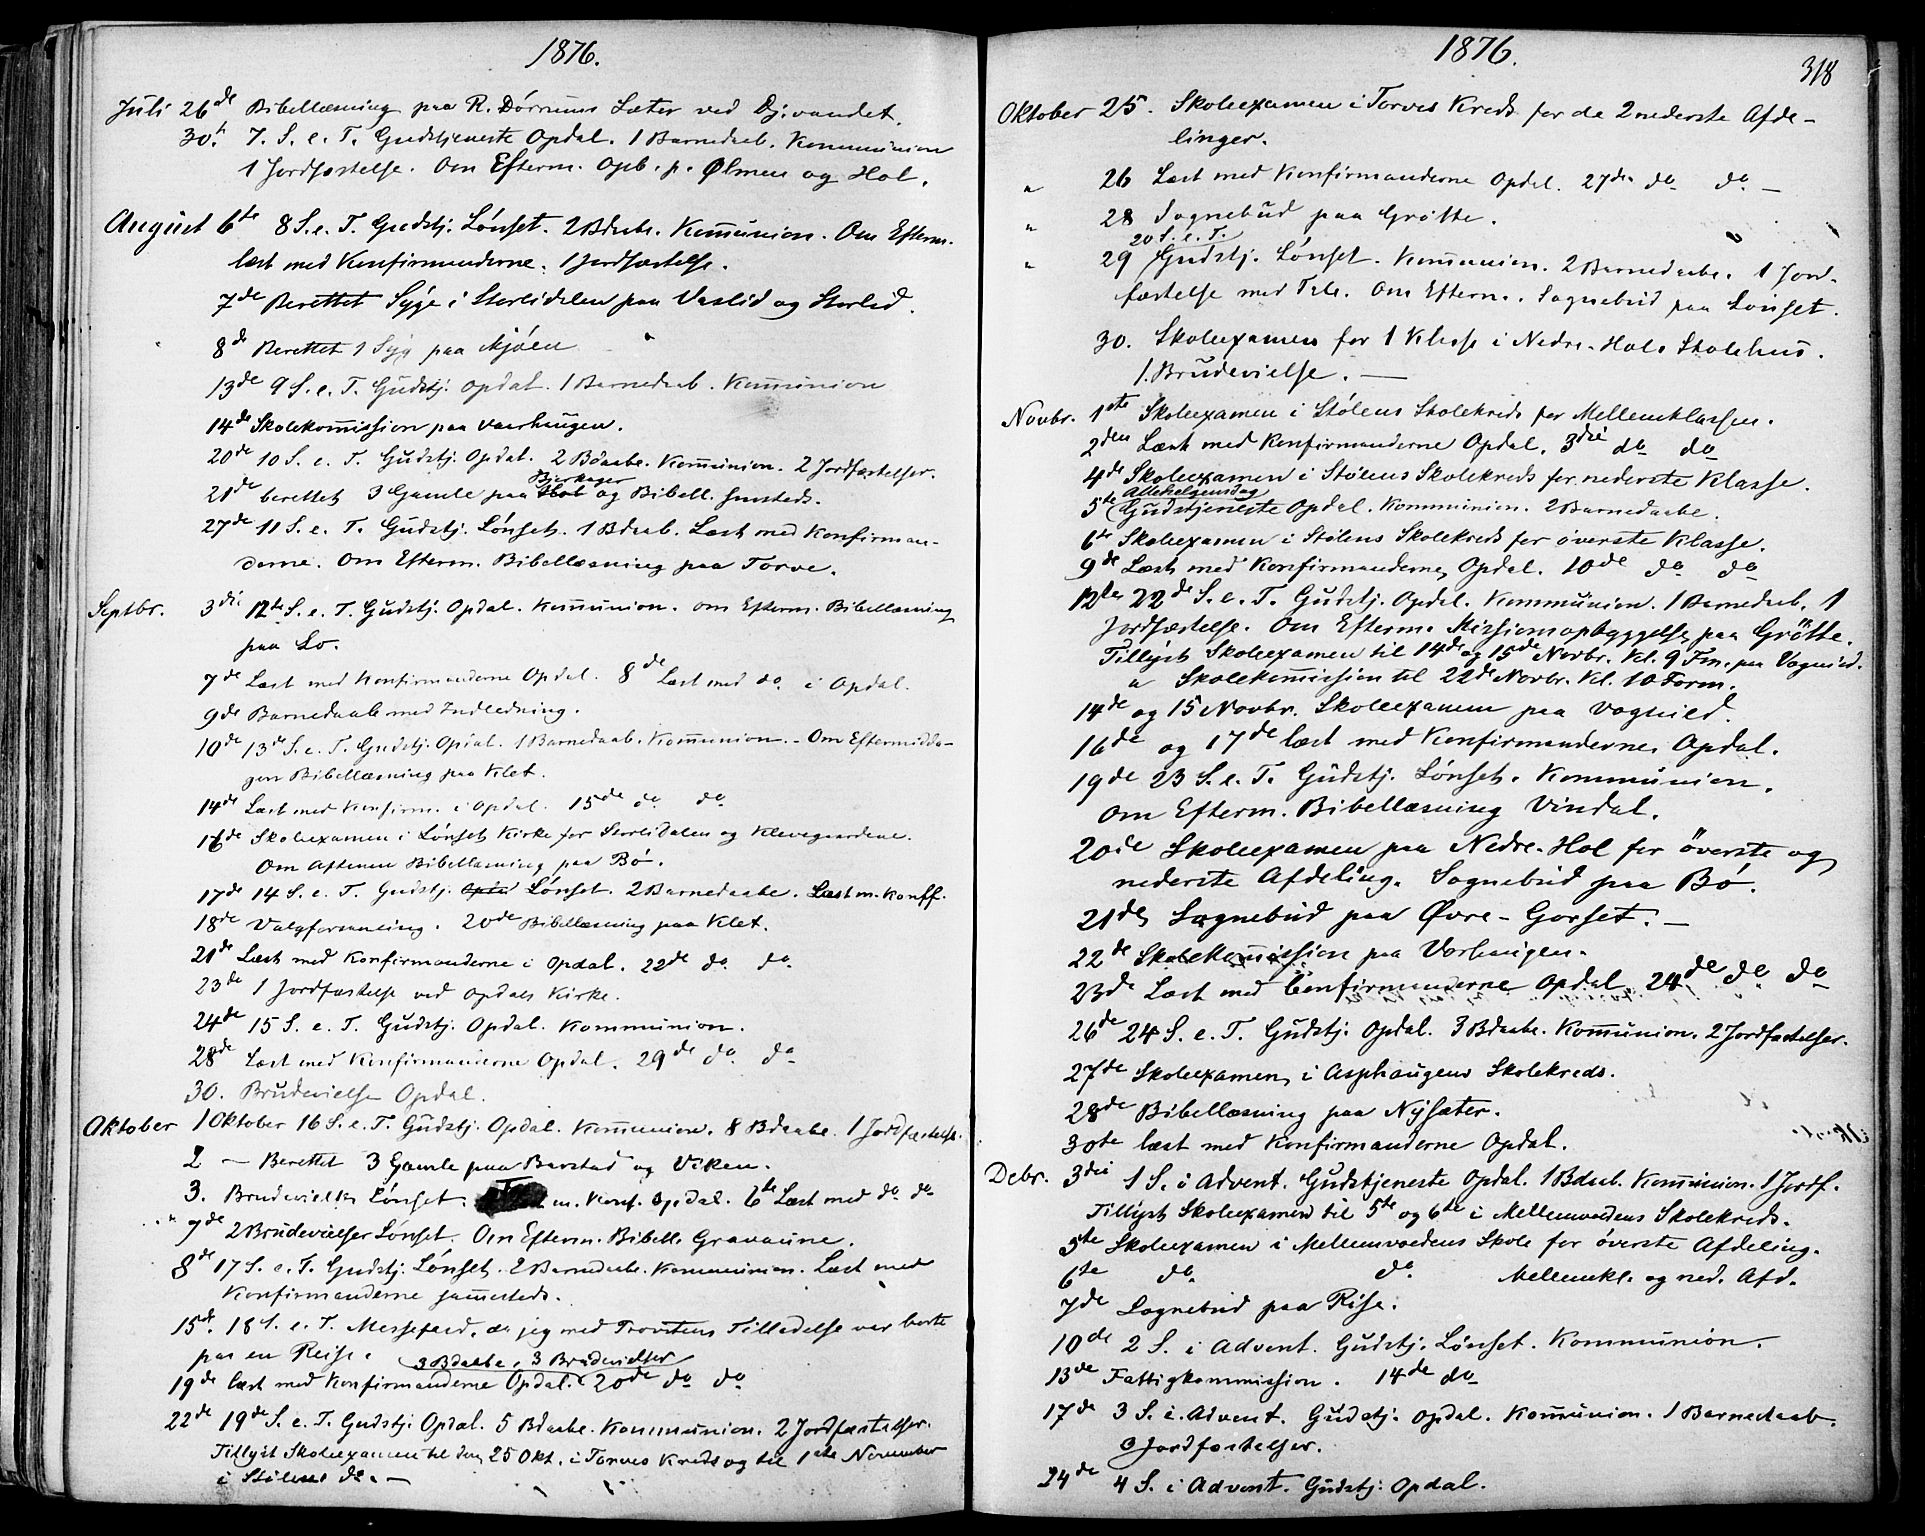 1876.
Juli 26de Bibellæsning paa R. Dörrums Sæter ved Dj.vandet.
30te 7. S. e. T. Gudstjeneste Opdal. 1 Barnedaab. Kommunion
1 Jordfæstelse. Om Efterm. Opb. p. Ølmen og Hol.
August 6te 8 S. e. T. Gudstj. Lønset. 2 Bdaabe. Kommunion. Om Efterm.
læst med Konfirmanderne. 1 Jordfæstelse.
7de Berettet Syge i Storlidalen paa Vaslid og Storlid.
8de Berettet 1 Syg paa Mjöen
13de 9 S. e. T. Gudstj. Opdal. 1 Barnedaab. Kommunion
14de Skolekommission paa Vaerhaugen.
20de 10 S. e. T. Gudstj. Opdal. 2 Bdaabe. Kommunion. 2 Jordfæstelser.
21de berettet 3 Gamle paa Hol Bjerkager og Bibell. sammesteds.
27de 11 S. e. T. Gudstj. Lönset. 1 Bdaab. Læst med Konfirman-
derne. Om Efterm. Bibellæsning paa Torve.
Septbr. 3die 12te S. e. T. Gudstj. Opdal. Kommunion. Om Efterm. Bibellæsning
paa Lo.
7de Læst med Konfirmanderne Opdal. 8de Læst med do. i Opdal.
9de Barnedaab med Indledning.
10de 13de S. e. T. Gudstj. Opdal. 1 Barnedaab. Kommunion. - Om Eftermidda-
gen Bibellæsning paa Klet.
14de Læst med Konfirm. i Opdal. 15de do. do.
16de Skoleexamen i Lönset Kirke for Storlidalen og Klevegaardene.
Om Aftenen Bibellæsning paa Bö.
17de 14 S. e. T. Gudstj. Opdal Lönset. 2 Barnedaabe. Læst m. Konff.
18de Valgforsamling. 20de Bibellæsning paa Klet.
21de Læst med Konfirmanderne i Opdal. 22de do. do.
23de 1 Jordfæstelse ved Opdals Kirke.
24de 15 S. e. T. Gudstj. Opdal. Kommunion.
28de Læst med Konfirmanderne Opdal. 29de do. do
30. Brudevielse Opdal.
Oktober 1 Oktober 16 S. e. T. Gudstj. Opdal. Kommunion. 8 Bdaabe. 1 Jordfæstelse.
2 — Berettet 3 Gamle paa Barstad og Viken.
3. Brudevielse Lönset. m. Konf. Opdal. 6te Læst med do. do.
7de 2 Brudevielser Lönset. Om Efterm. Bibell. Gravaune.
8de 17 S. e. T. Gudstj. Lönset. 2 Barnedaabe. Kommunion. Læst med
Konfirmanderne sammesteds.
15de 18 S. e. T. Messefald, da jeg med Provstens Tilladelse var borte
paa en Reise. 3 Bdaabe, 3 Brudevielser
19de læst med Konfirmanderne Opdal. 20de do do.
22de 19de S. e. T. Gudstj. Opdal. 5 Bdaabe. Kommunion. 2 Jordfæstelser.
Tillyst Skoleexamen til den 25 Okt. i Torves Kreds og til 1ste November
i Stölens do. —
1876.
318
Oktober 25. Skoleexamen i Torves Kreds for de 2 nederste Afde-
linger.
" 26 Læst med Konfirmanderne Opdal. 27de do do —
" 28 Sognebud paa Grötte.
20 S. e. T.
" 29 Gudstj. Lönset. Kommunion. 2 Barnedaabe. 1 Jord-
fæstelse med Tale. Om Efterm. Sognebud paa Lönset.
30. Skoleexamen for 1 Klasse i Nedre-Hols Skolehus.
1. Brudevielse. —
Novbr. 1ste Skoleexamen i Stölens Skolekreds for Mellemklassen.
2den Læst med Konfirmanderne Opdal. 3die do do
4de Skoleexamen i Stölens Skolekreds for nederste Klasse.
Allehelgensdag
5te Gudstjeneste Opdal. Kommunion. 2 Barnedaabe.
6te Skoleexamen i Stölens Skolekreds for överste Klasse.
9de Læst med Konfirmanderne, Opdal. 10de do do
12te 22de S. e. T. Gudstj. Opdal. Kommunion. 1 Barnedaab. 1
Jordfæstelse. Om Efterm. Missionsopbyggelse paa Grötte.
Tillyst Skoleexamen til 14de og 15de Novbr. Kl. 9 Fm. paa Vognild.
" Skolekommission til 22de Novbr. Kl. 10 Form.
14de og 15 Novbr. Skoleexamen paa Vognild.
16de og 17de læst med Konfirmanderne, Opdal.
19de 23 S. e. T. Gudstj. Lönset. Kommunion.
Om Efterm. Bibellæsning Vindal.
20de Skoleexamen paa Nedre-Hol for överste og
nederste Afdeling. Sognebud paa Bö.
21de Sognebud paa Øvre-Gorset. —
22de Skolekommission paa Vorhaugen.
23de Læst med Confirmanderne Opdal 24de do do
26de 24 S. e. T. Gudstj. Opdal. 3 Bdaabe. Kommunion. 2 Jordfæstelser.
27de Skoleexamen i Asphaugens Skolekreds.
28de Bibellæsning paa Nysæter.
30te læst med Konfirmanderne Opdal.
Debr. 3die 1 S. i Advent. Gudstjeneste Opdal. 1 Bdaab. Kommunion. 1 Jordf.
Tillyst Skoleexamen til 5te og 6te i Mellemvoldens Skolekreds.
5te Skoleexamen i Mellemvoldens Skole for överste Afdeling.
6te do. do. Mellemkl. og ned. Afd.
7de Sognebud paa Rise.
10de 2 S. i Advent. Gudstj. Lönset. Kommunion.
13de Fattigkommission. 14de do
17de 3 S. i. Advent. Gudstj. Opdal. Kommunion. 1 Barnedaab.
3 Jordfæstelser.
24de 4 S. i Advent. Gudstj. Opdal.